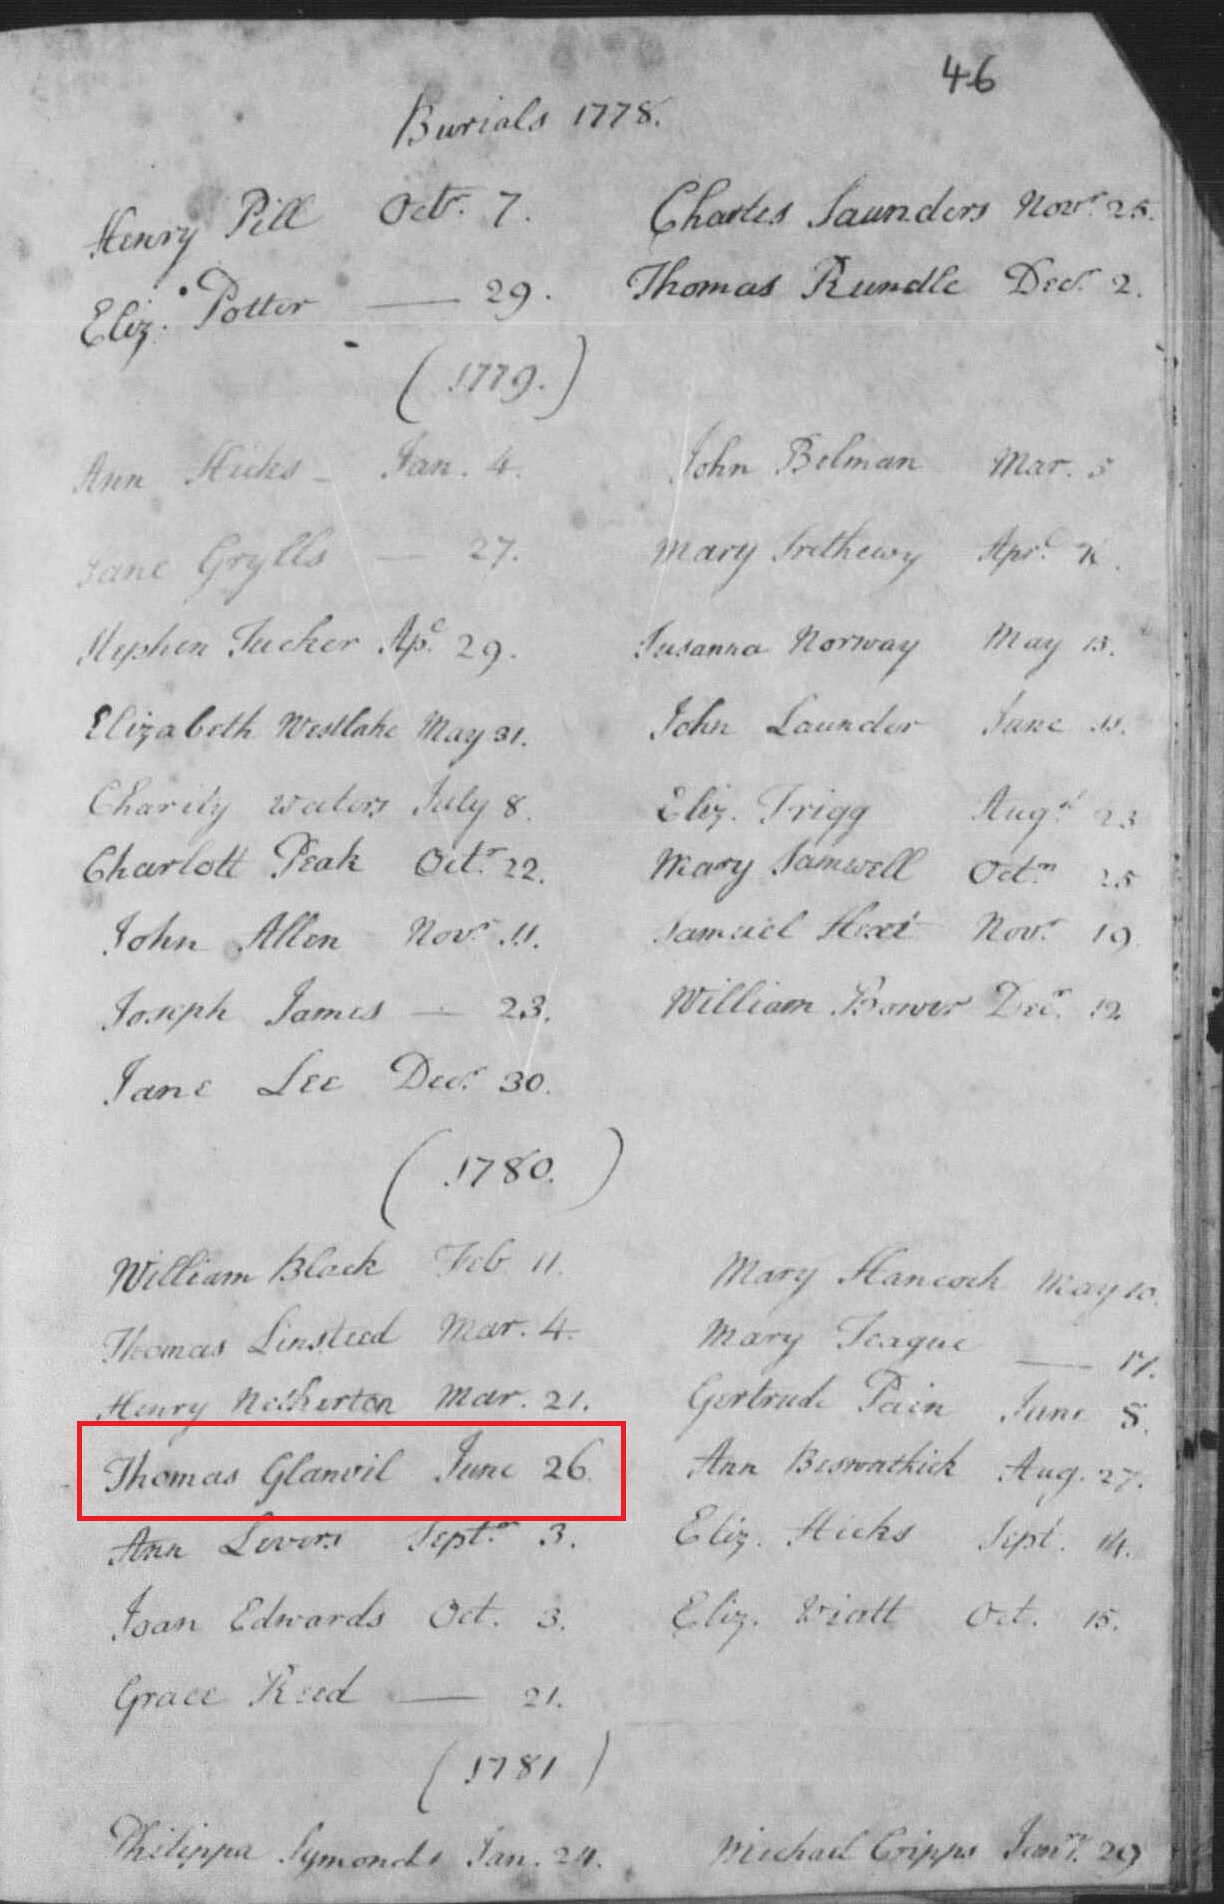 46
Burials 1778.
Henry Pill Octr. 7. Charles Saunders Novr. 25.
Eliz. Potter — 29. Thomas Rundle Decr. 2.
(1779.)
Ann Hicks — Jan. 4. John Bolman Mar. 5
Jane Grylls — 27. Mary Trethewy Aprl.
Stephen Tucker Apl. 29. Susanna Norway May 13.
Elizabeth Westlake May 31. John Launder June 11.
Charity Waters July 8. Eliz. Trigg Augst 23
Charlott Peak Octr. 22. Mary Samwell Octr. 25
John Allen Novr. 11. Samuel Hext Novr. 19
Joseph James — 23. William Bower Decr. 12.
Jane Lee Decr. 30.
(1780.)
William Black Feb. 11. Mary Hancock May 10.
Thomas Linsteed Mar. 4. Mary Teague — 17.
Henry Netherton Mar. 21. Gertrude Pain June 8.
Thomas Glanvil June 26. Ann Beswathick Aug. 27.
Ann Levers Septr. 3. Eliz. Hicks Sept. 14.
Joan Edwards Oct. 3. Eliz. Wiatt Oct. 15.
Grace Reed — 21.
(1781)
Philippa Symonds Jan. 24. Michael Cripps Janry. 29